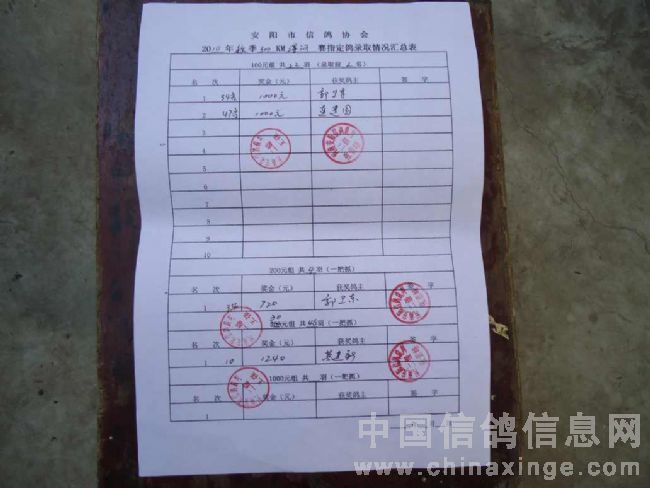 安阳市信鸽协会
2010年秋季500KM 赛指定鸽录取情况汇总表
100元组 共 羽（录取前2名）
名 次 奖金（元） 获奖鸽主 签 字
1 34名 1000元 郭卫东
2 47名 1000元 建国
3
4
5
6
7
8
9
10
200元组 共9羽（一把抓）
名 次 奖金（元） 获奖鸽主 签 字
1 34 720 郭卫东
元组 共 羽（一把抓）
名 次 奖金（元） 获奖鸽主 签 字
1 10 1240 建新
1000元组 共 羽（一把抓）
名 次 奖金（元） 获奖鸽主 签 字
1
中国信鸽信息网
www.chinaxinge.com